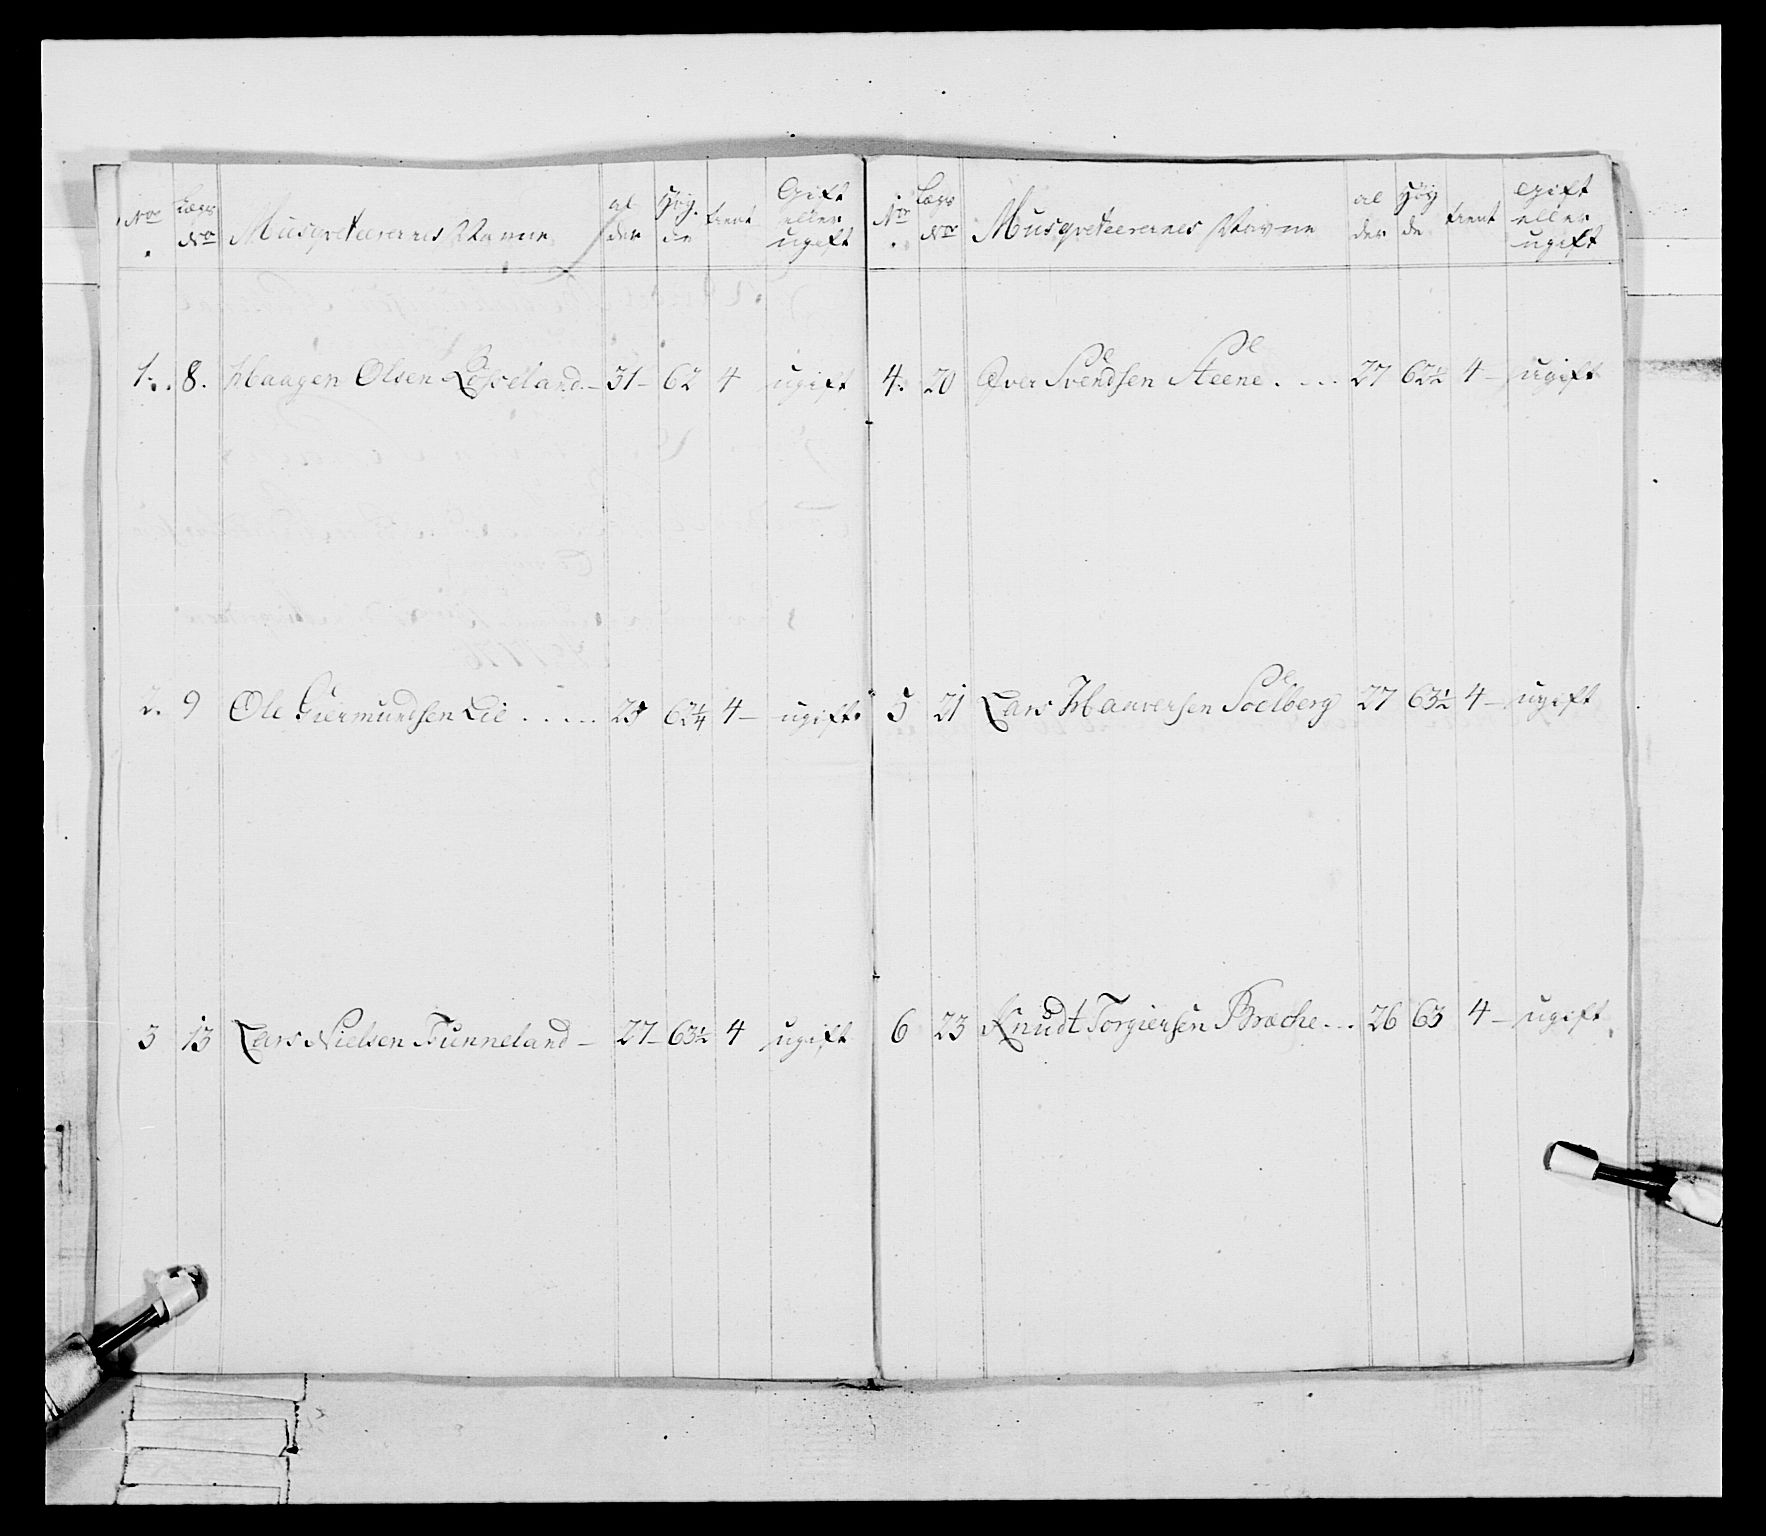 No Lægs No Musqveteerernes Navne al der Høy de tient Gift eller ugift
1. 8. Haagen Olsen Løsseland 31 62 4 ugift
2. 9 Ole Giermundsen Lie 25 62¼ 4 ugift
3 13 Lars Nielsen Funneland 27 63½ 4 ugift
No Lægs No Musqveteerernes Navne al der Høy de tient Gift eller ugift
4. 20 Iver Svendsen Steene 27 62½ 4 ugift
5 21 Lars Hanversen Soelberg 27 63½ 4 ugift
6 23 Knudt Torgiersen Bræche 26 63 4 ugift